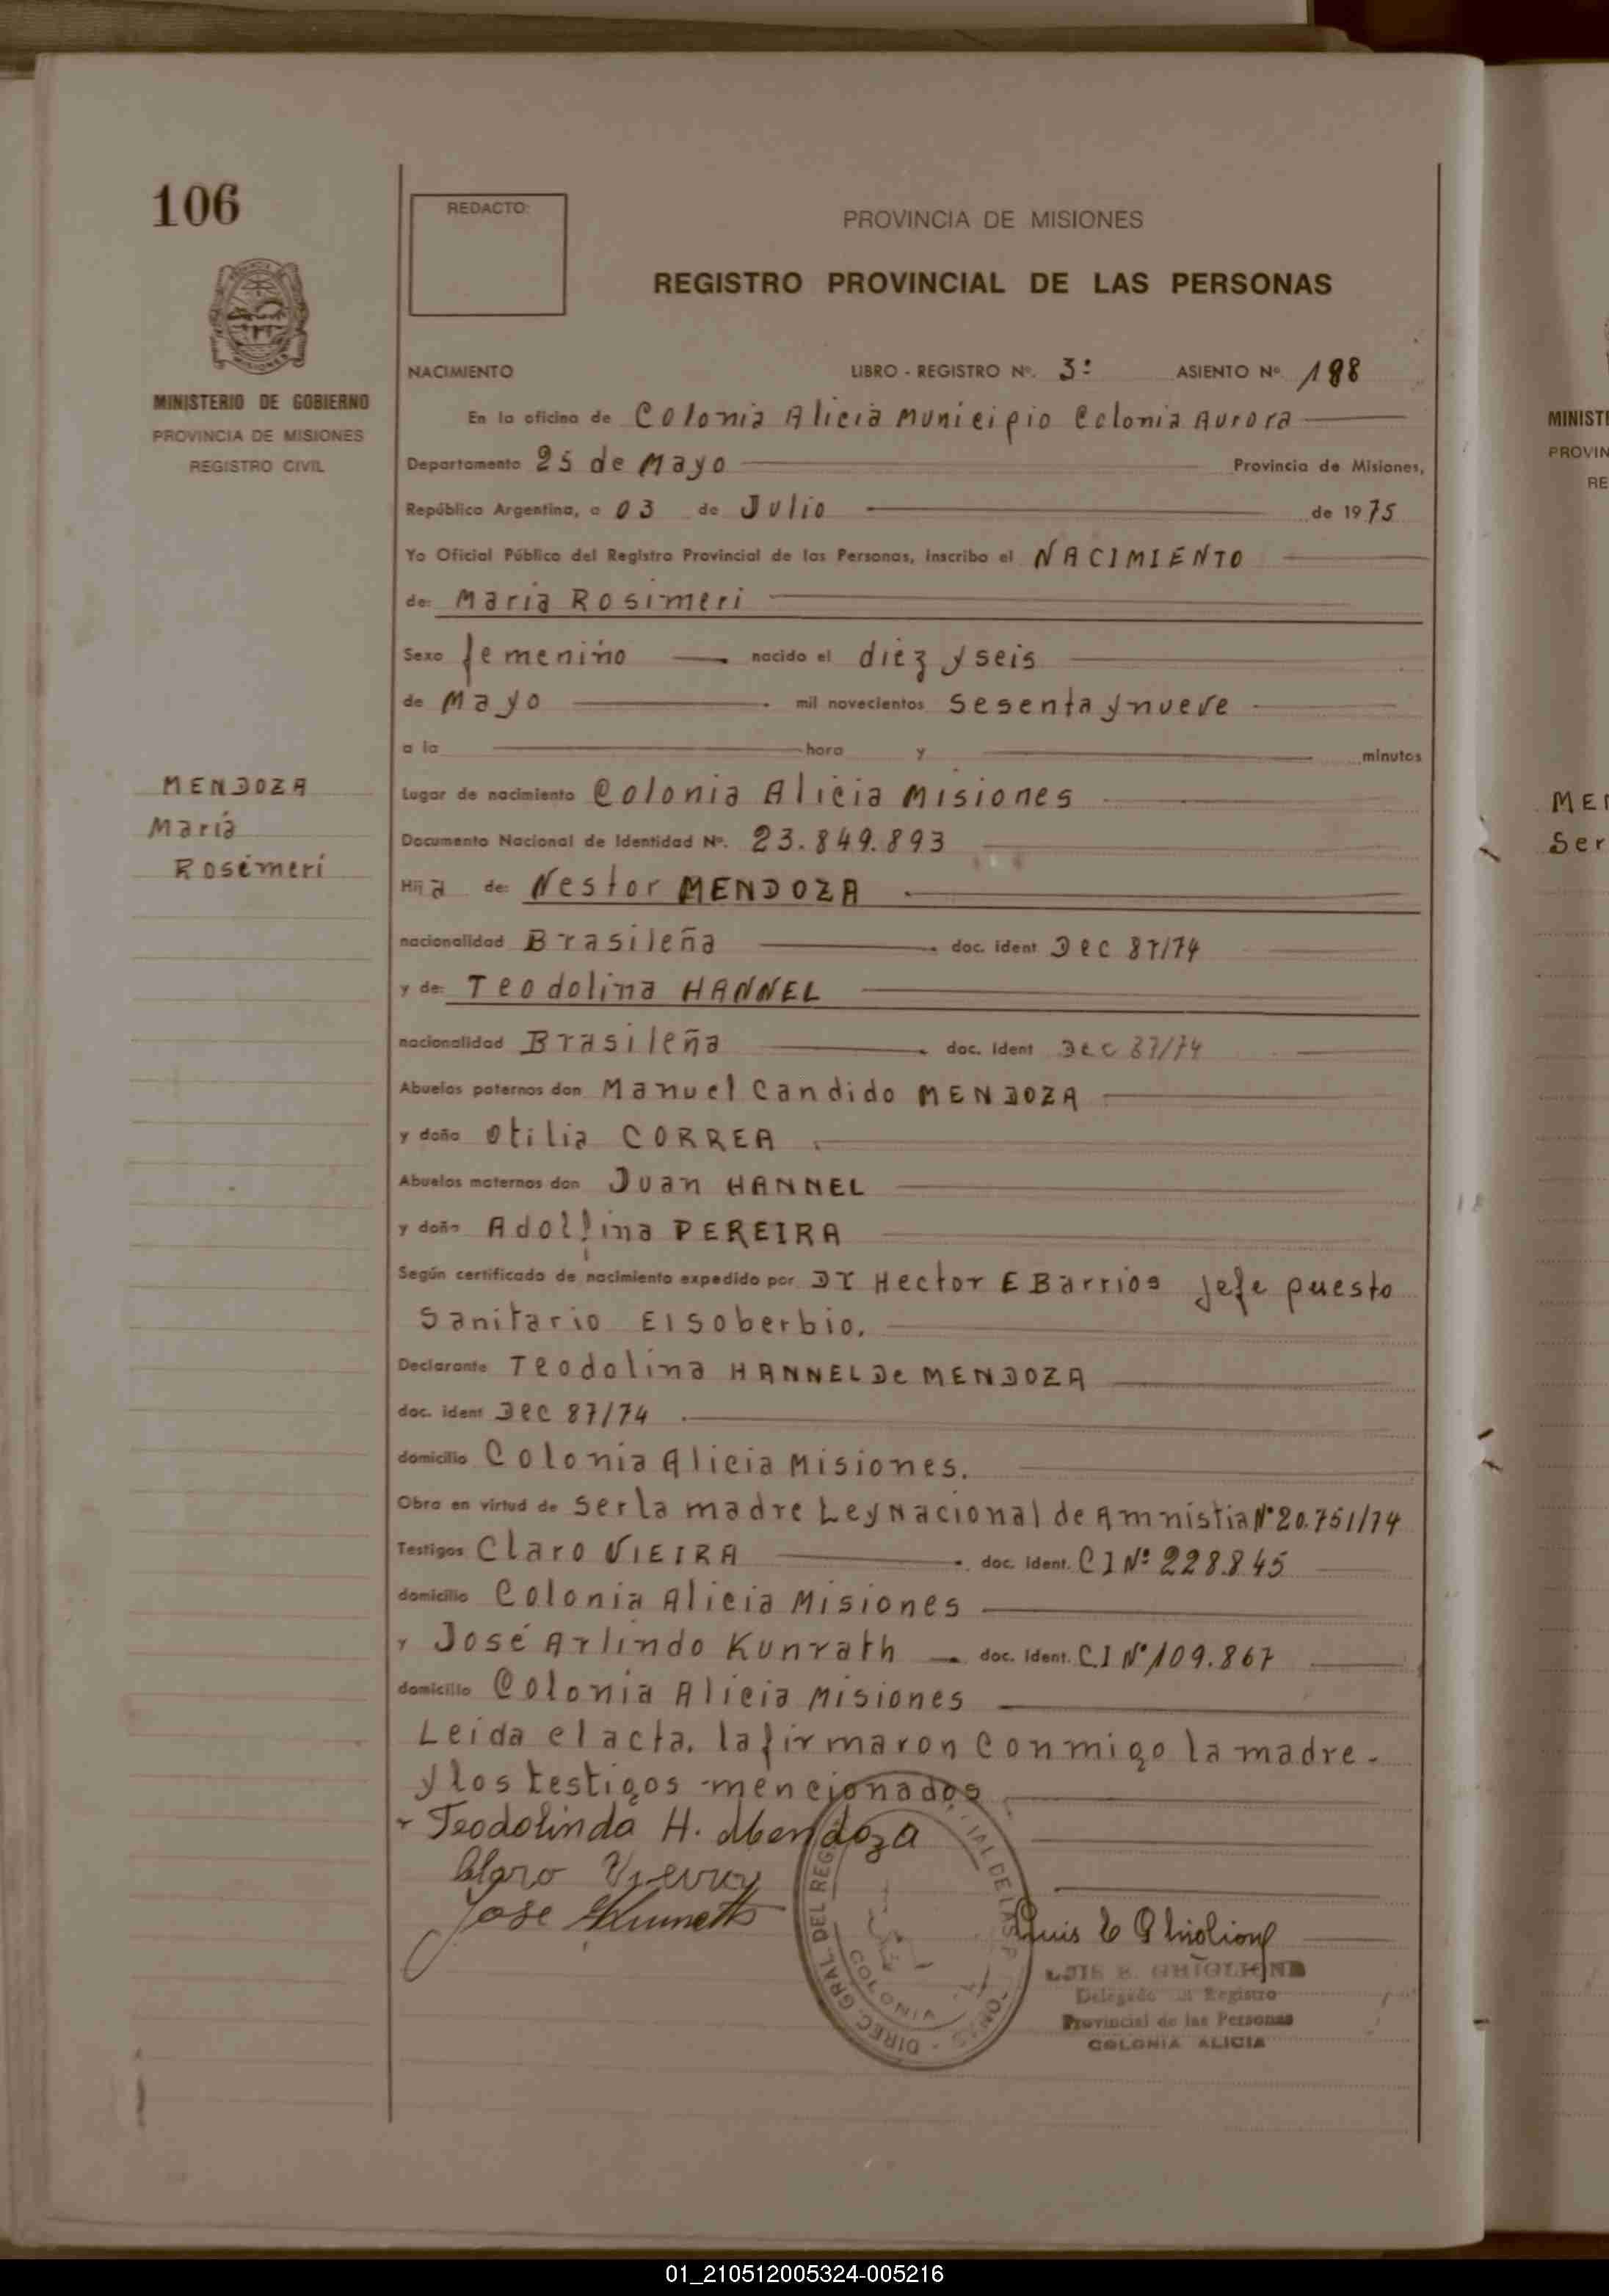 106
REDACTO:
PROVINCIA DE MISIONES
REGISTRO PROVINCIAL DE LAS PERSONAS
MINISTERIO DE GOBIERNO
PROVINCIA DE MISIONES
REGISTRO CIVIL
NACIMIENTO LIBRO - REGISTRO Nº. 3º ASIENTO Nº 188
En la oficina de Colonia Alicia Municipio Colonia Aurora
Departamento 25 de Mayo Provincia de Misiones,
República Argentina, a 03 de Julio de 1975
Yo Oficial Público del Registro Provincial de las Personas, inscribo el NACIMIENTO
de: Maria Rosimeri
Sexo femenino nacido el diez y seis
de Mayo mil novecientos sesenta y nueve
a la hora y minutos
MENDOZA
Maria
Rosimeri
Lugar de nacimiento Colonia Alicia Misiones
Documento Nacional de Identidad Nº. 23.849.893
Hija de: Nestor MENDOZA
nacionalidad Brasileña doc. ident Dec 87/74
y de: Teodolina HANNEL
nacionalidad Brasileña doc. ident Dec 87/74
Abuelos paternos don Manuel Candido MENDOZA
y doña Otilia CORREA
Abuelos maternos don Juan HANNEL
y doña Adolfina PEREIRA
Según certificado de nacimiento expedido por Dr Hector E Barrios jefe puesto
Sanitario El Soberbio.
Declarante Teodolina HANNEL De MENDOZA
doc. ident Dec 87/74
domicilio Colonia Alicia Misiones.
Obra en virtud de ser la madre Ley Nacional de Amnistia Nº 20.751/74
Testigos Claro VIEIRA doc. ident. CI Nº 228.845
domicilio Colonia Alicia Misiones
y José Arlindo Kunrath doc. ident. CI Nº 109.867
domicilio Colonia Alicia Misiones
Leida el acta, la firmaron conmigo la madre
y los testigos mencionados
Teodolinda H. Mendoza
Claro
Jose
Luis E Ghiglione
LUIS E. GHIGLIONE
Delegado Registro
Provincial de las Personas
COLONIA ALICIA
DIREC. GRAL DEL REG IAL DE LAS
COLONIA
MINISTE
PROVIN
RE
MEN
Ser
01_210512005324-005216